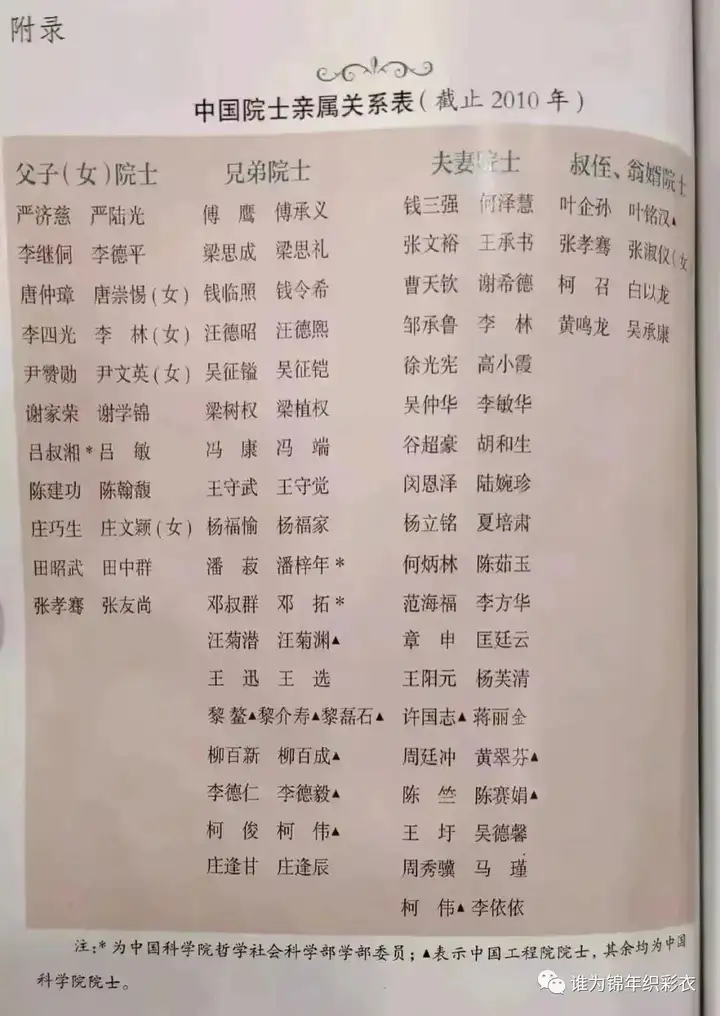 附录
中国院士亲属关系表(截止2010年)
父子(女)院士 兄弟院士 夫妻院士 叔侄、翁婿院士
严济慈 严陆光 傅鹰 傅承义 钱三强 何泽慧 叶企孙 叶铭汉▲
李继侗 李德平 梁思成 梁思礼 张文裕 王承书 张孝骞 张淑仪(女
唐仲璋 唐崇惕(女) 钱临照 钱令希 曹天钦 谢希德 柯召 白以龙
李四光 李林(女) 汪德昭 汪德熙 邹承鲁 李林 黄鸣龙 吴承康
尹赞勋 尹文英(女) 吴征镒 吴征铠 徐光宪 高小霞
谢家荣 谢学锦 梁树权 梁植权 吴仲华 李敏华
吕叔湘* 吕敏 冯康 冯端 谷超豪 胡和生
陈建功 陈翰馥 王守武 王守觉 闵恩泽 陆婉珍
庄巧生 庄文颖(女) 杨福愉 杨福家 杨立铭 夏培肃
田昭武 田中群 潘菽 潘梓年* 何炳林 陈茹玉
张孝骞 张友尚 邓叔群 邓拓* 范海福 李方华
汪菊潜 汪菊渊▲ 章申 匡廷云
王迅 王选 王阳元 杨芙清
黎鳌▲ 黎介寿▲ 黎磊石▲ 许国志▲ 蒋丽金
柳百新 柳百成▲ 周廷冲 黄翠芬▲
李德仁 李德毅▲ 陈竺 陈赛娟▲
柯俊 柯伟▲ 王圩 吴德馨
庄逢甘 庄逢辰 周秀骥 马瑾
柯伟▲ 李依依
注:*为中国科学院哲学社会科学部学部委员;▲表示中国工程院院士,其余均为中国
科学院院士。
谁为锦年织彩衣